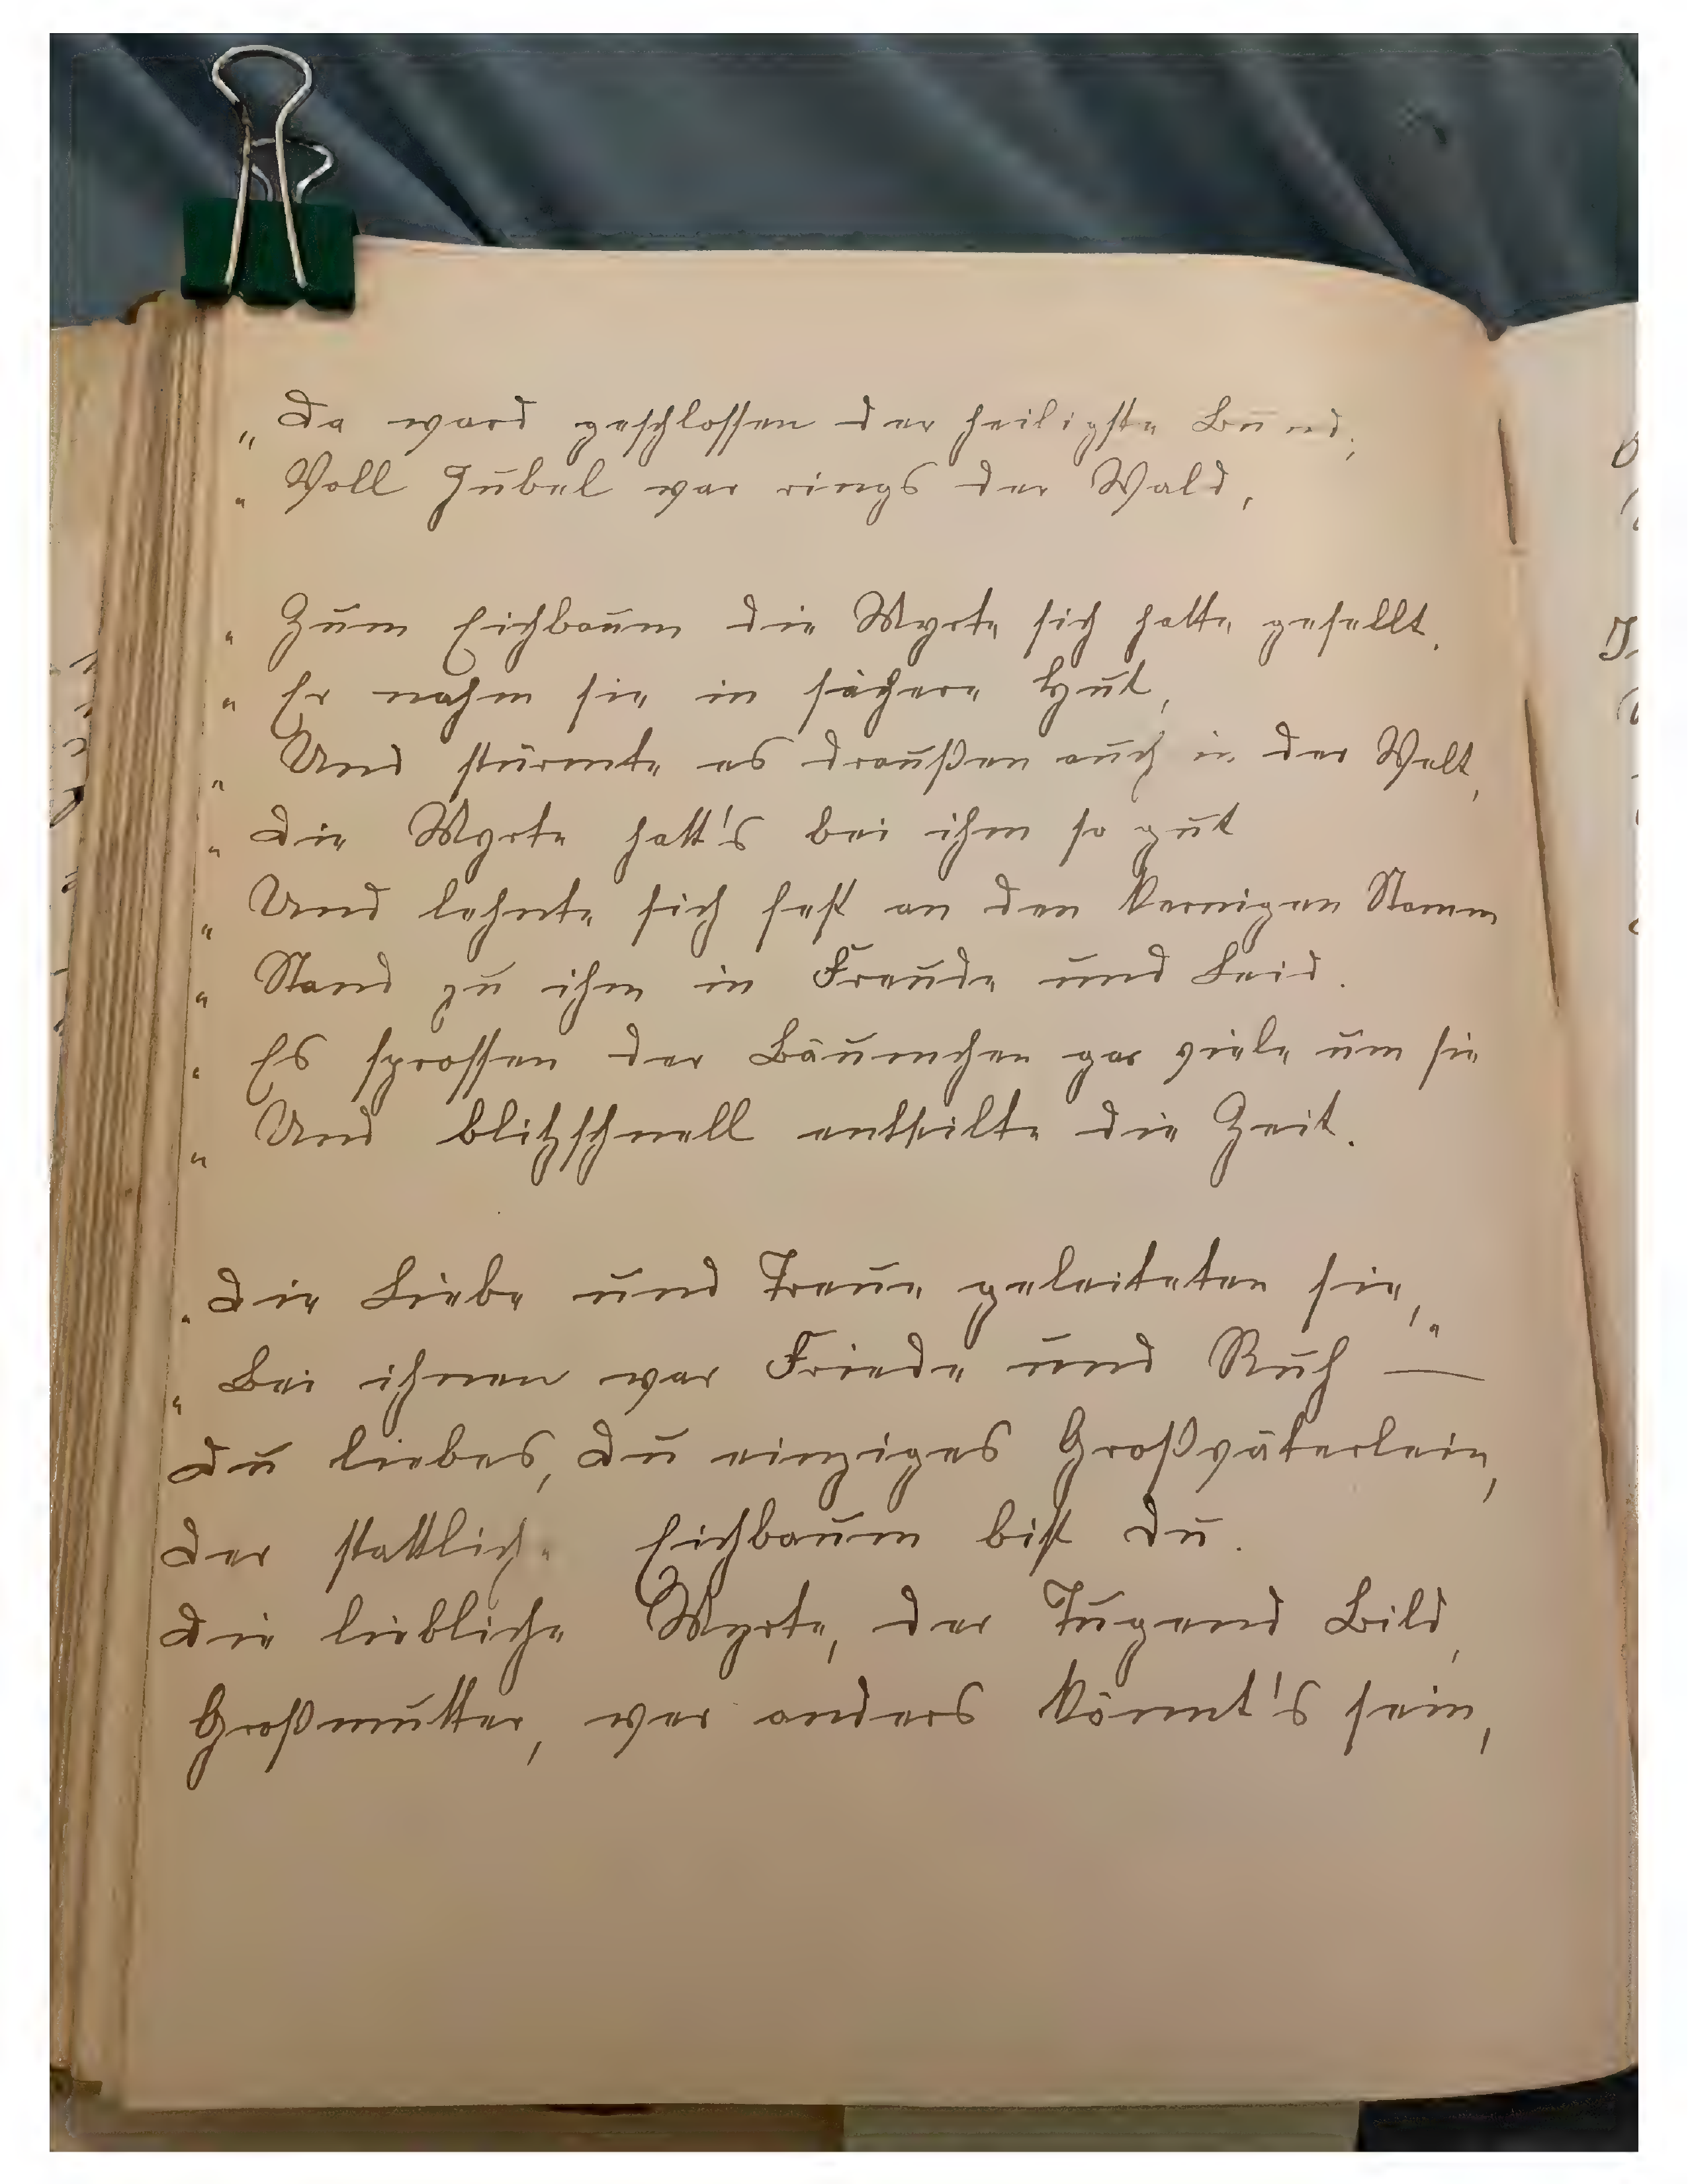 „ Da ward geschlossen der heiligste Bund,
„ Voll Jubel war rings der Wald,
„ Zum Eichbaum die Myrte sich hatte gesellt.
„ Er nahm sie in sichere Hut,
„ Und stürmte es draußen auch in der Welt,
„ Die Myrte hatt's bei ihm so gut
„ Und lehnte sich fest an den kernigen Stamm
„ Stand zu ihm in Freude und Leid.
„ Es sprossen der Bäumchen gar viele um sie
„ Und blitzschnell entheilte die Zeit.
„ Die Liebe und Treue geleiteten sie,"
„ Bei ihnen war Friede und Ruh —
Du liebes, Du einziges Großväterlein,
Der stattliche Eichbaum bist Du.
Die liebliche Myrte, der Tugend Bild,
Großmutter, wer anders könnt's sein,